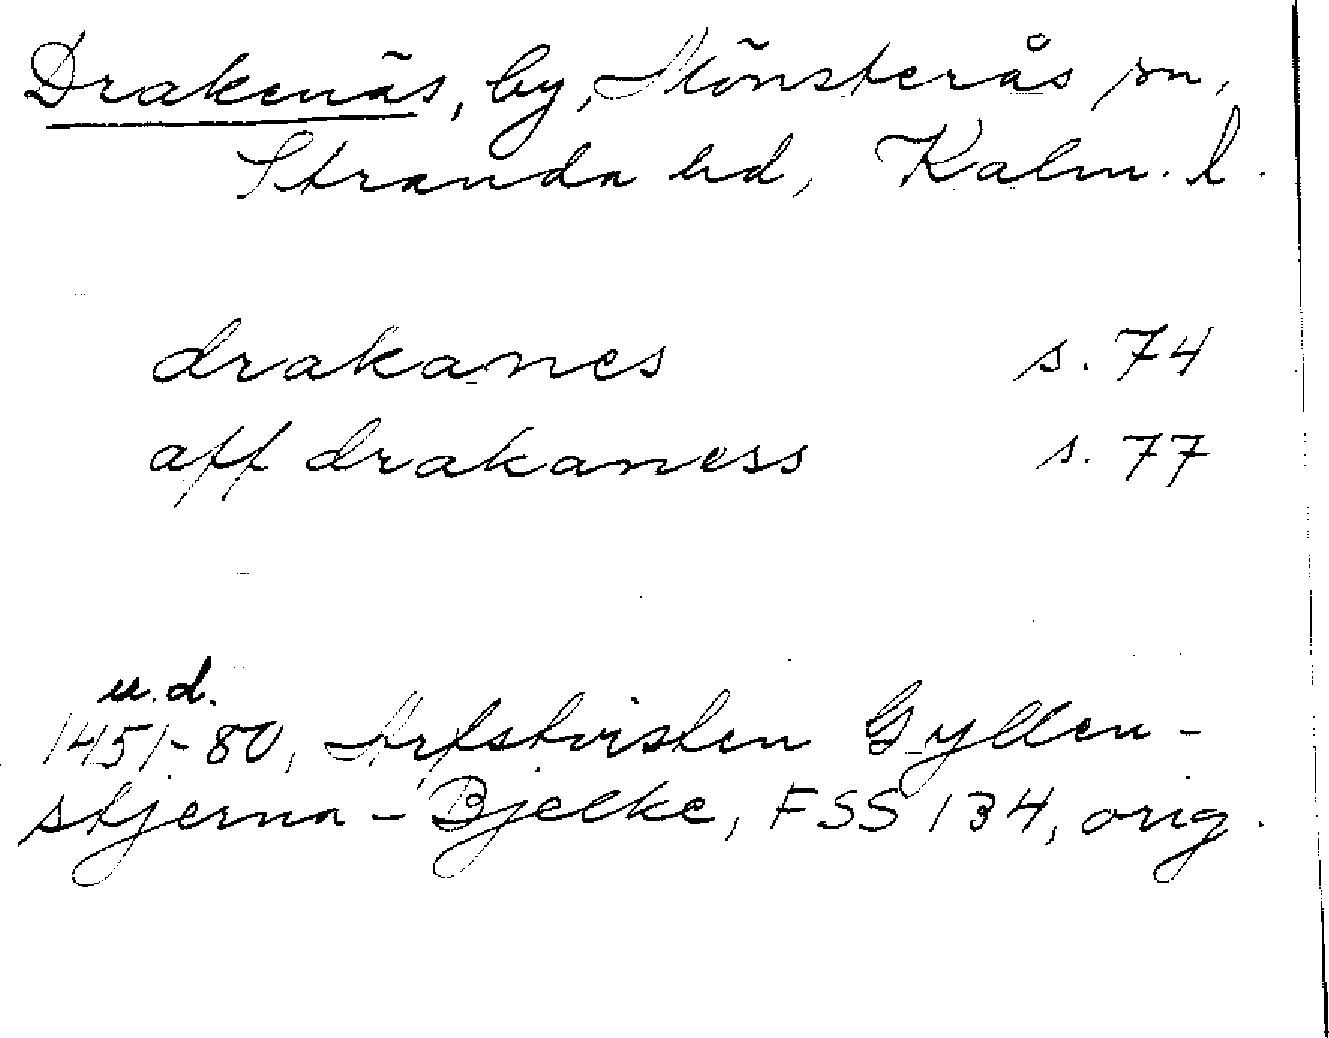 Drakenäs, by, Mönsterås sn,
Stranda hd, Kalm. l.
drakanes s. 74
aff drakaness s. 77
u.d.
1451-80, Arfstvisten Gyllen-
stjerna - Bjelke, FSS 134, orig.